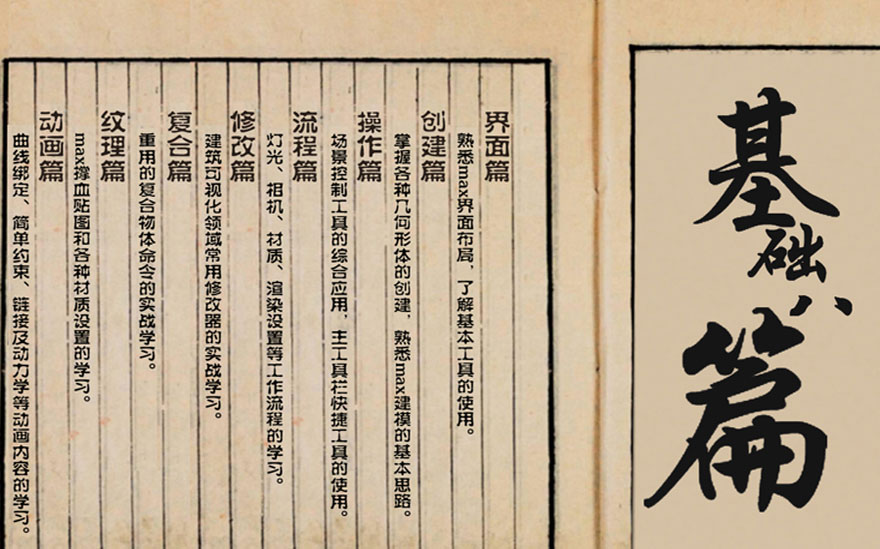 基础八篇
界面篇
熟悉max界面布局，了解基本工具的使用。
创建篇
掌握各种几何形体的创建，熟悉max建摸的基本思路。
操作篇
场景控制工具的综合应用，主工具栏快捷工具的使用。
流程篇
灯光、相机、材质、渲染设置等工作流程的学习。
修改篇
建筑可视化领域常用修改器的实战学习。
复合篇
重用的复合物体命令的实战学习。
纹理篇
max撑血贴图和各种材质设置的学习。
动画篇
曲线绑定、简单约束、链接及动力学等动画内容的学习。